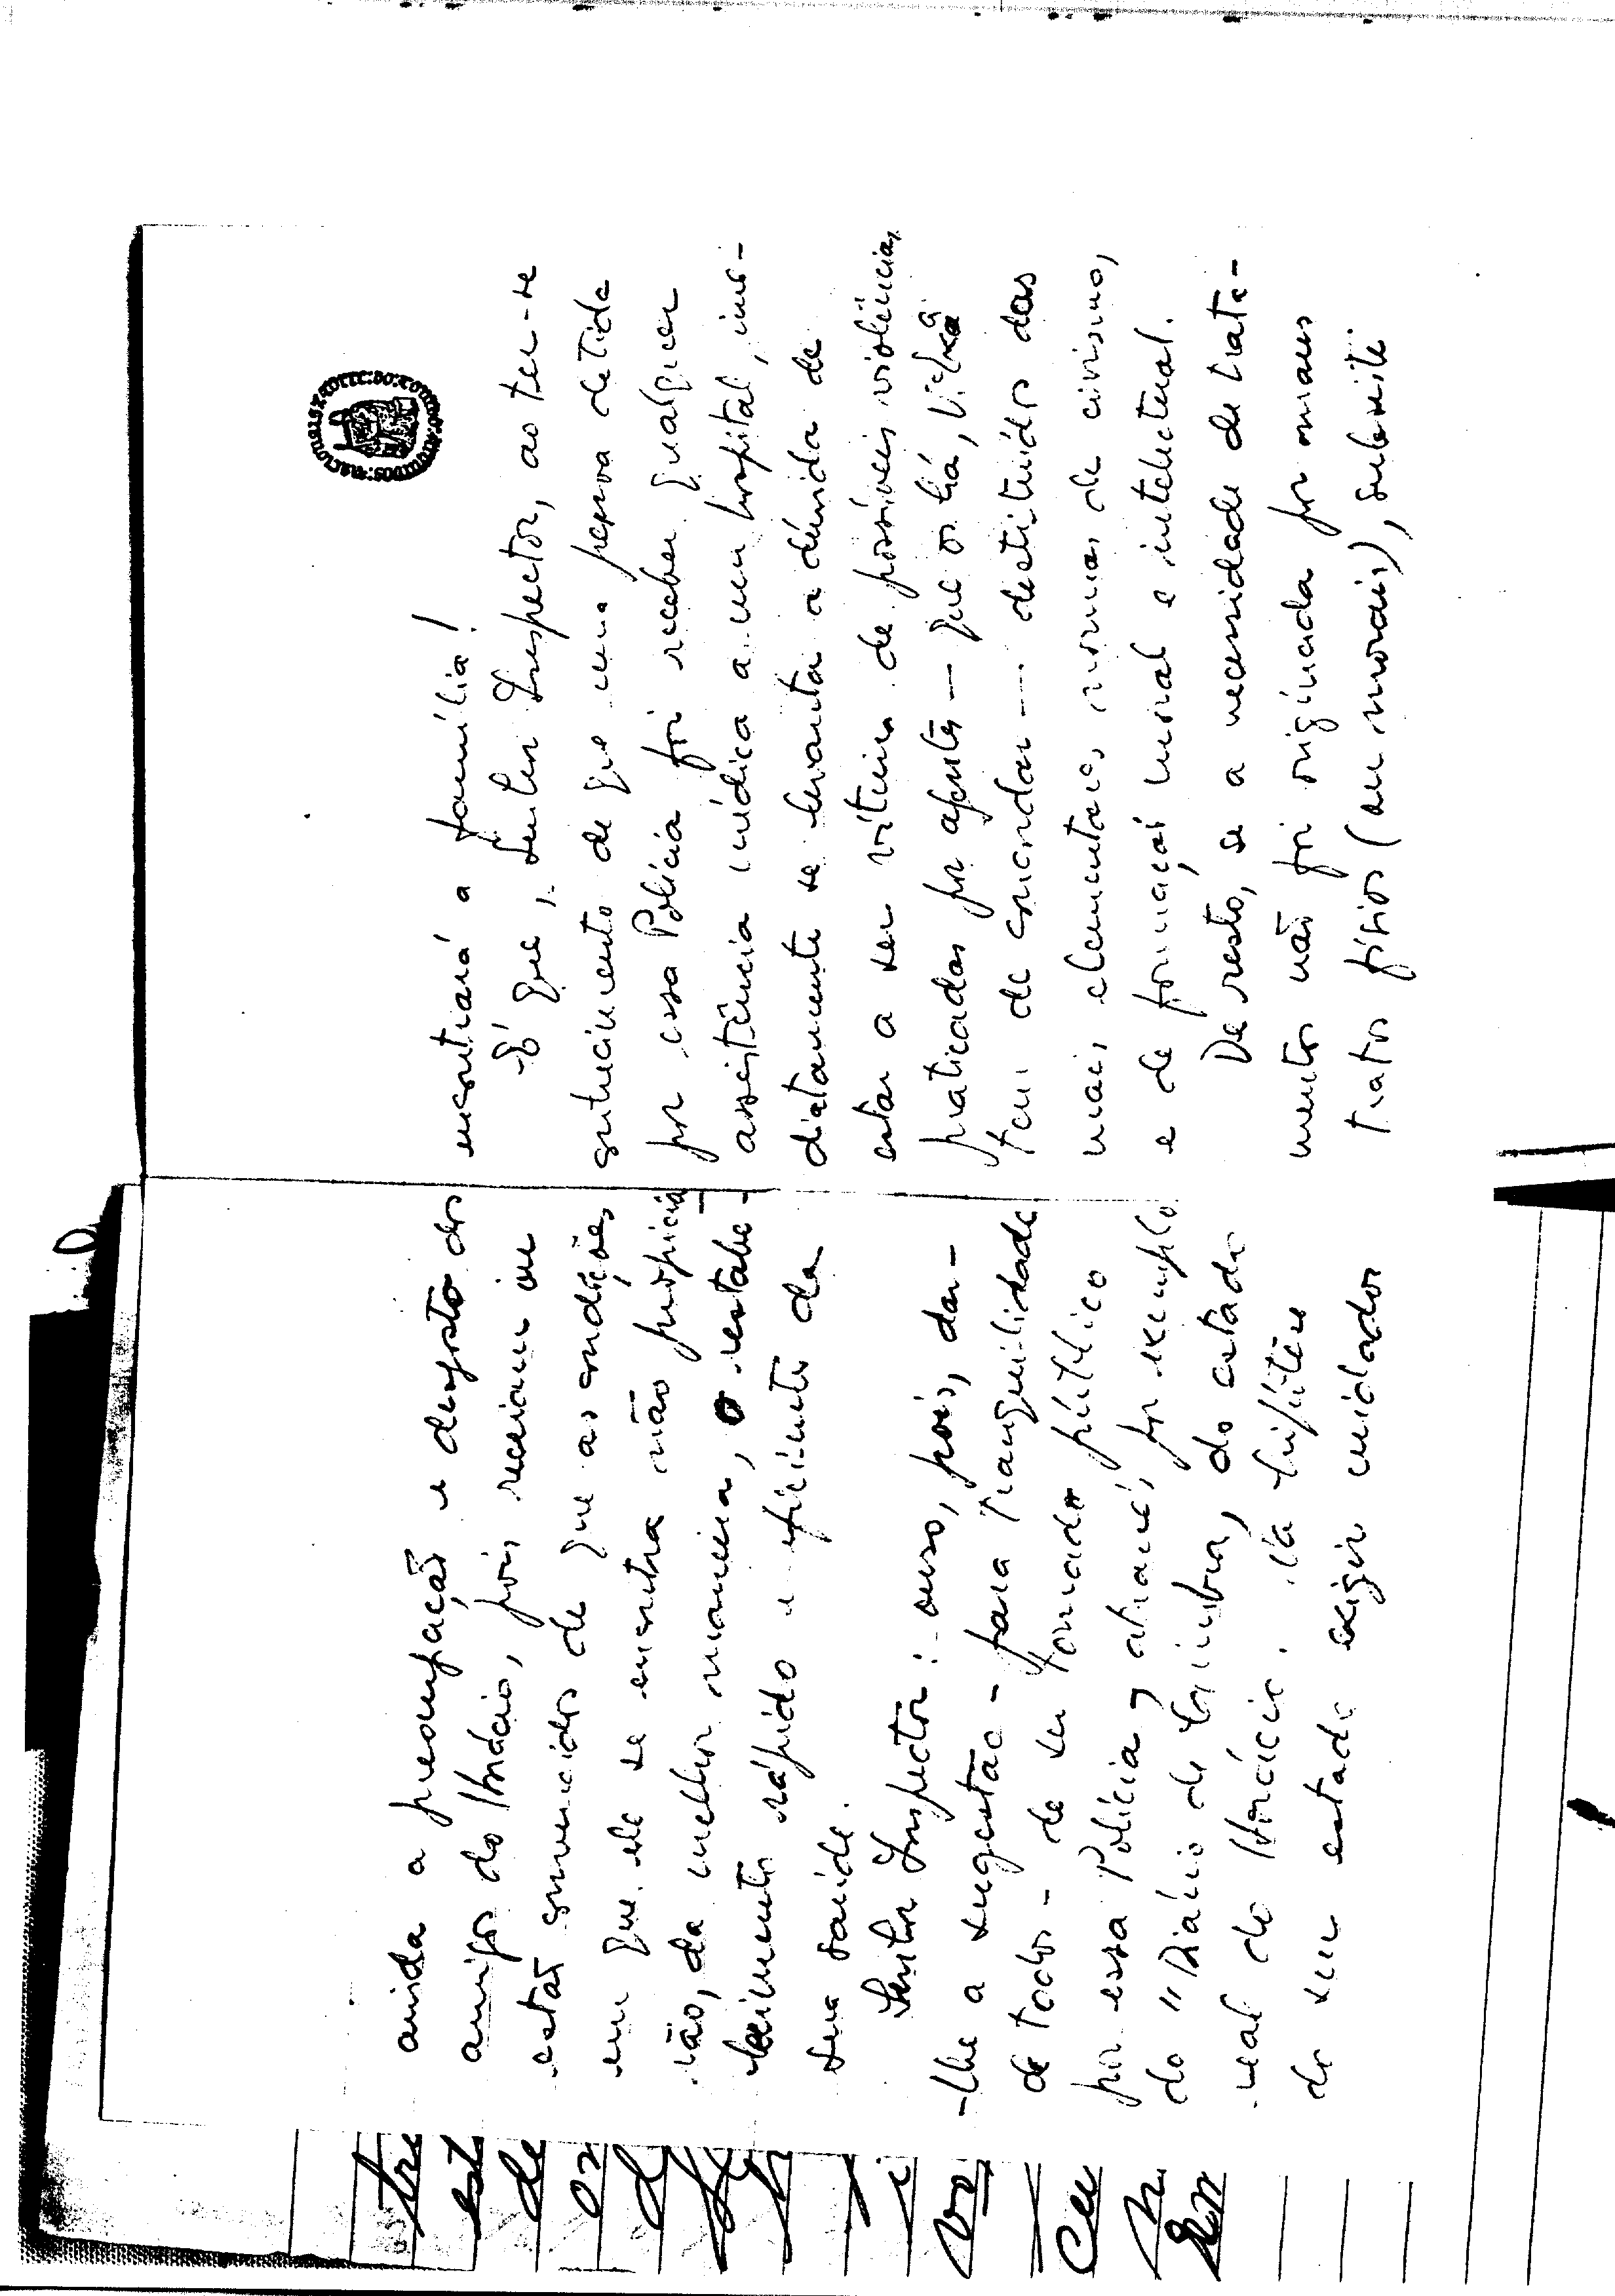 ainda a preocupação e desgosto dos
amigos do Horácio, pois receiam ou
estão convencidos de que as condições
em que ele se encontra não propicia-
rão, da melhor maneira, o restabe-
lecimento rápido e eficiente da
sua saúde.
Senhor Inspector: ouso, pois, dar-
-lhe a sugestão - para tranquilidade
de todos - de ser tornado público
por essa Polícia, através, por exemplo
do "Diário de Coimbra", do estado
real do Horácio.
do seu estado exigir cuidados
encontrará a família!
É que, Senhor Inspector, ao ter-se
conhecimento de que uma pessoa detida
por essa Polícia foi receber qualquer
assistência médica a um hospital, ime-
diatamente se levanta a dúvida de
estar a ser vítima de possíveis violências
praticadas por agentes — que os há,
de comandar — destituídos das
mais elementares normas de civismo,
e de formação moral e intelectual.
De resto, se a necessidade de trata-
mento não foi originada por maus
tratos físicos (ou morais), subsiste
TORRE·DO·TOMBO
fre
est
de